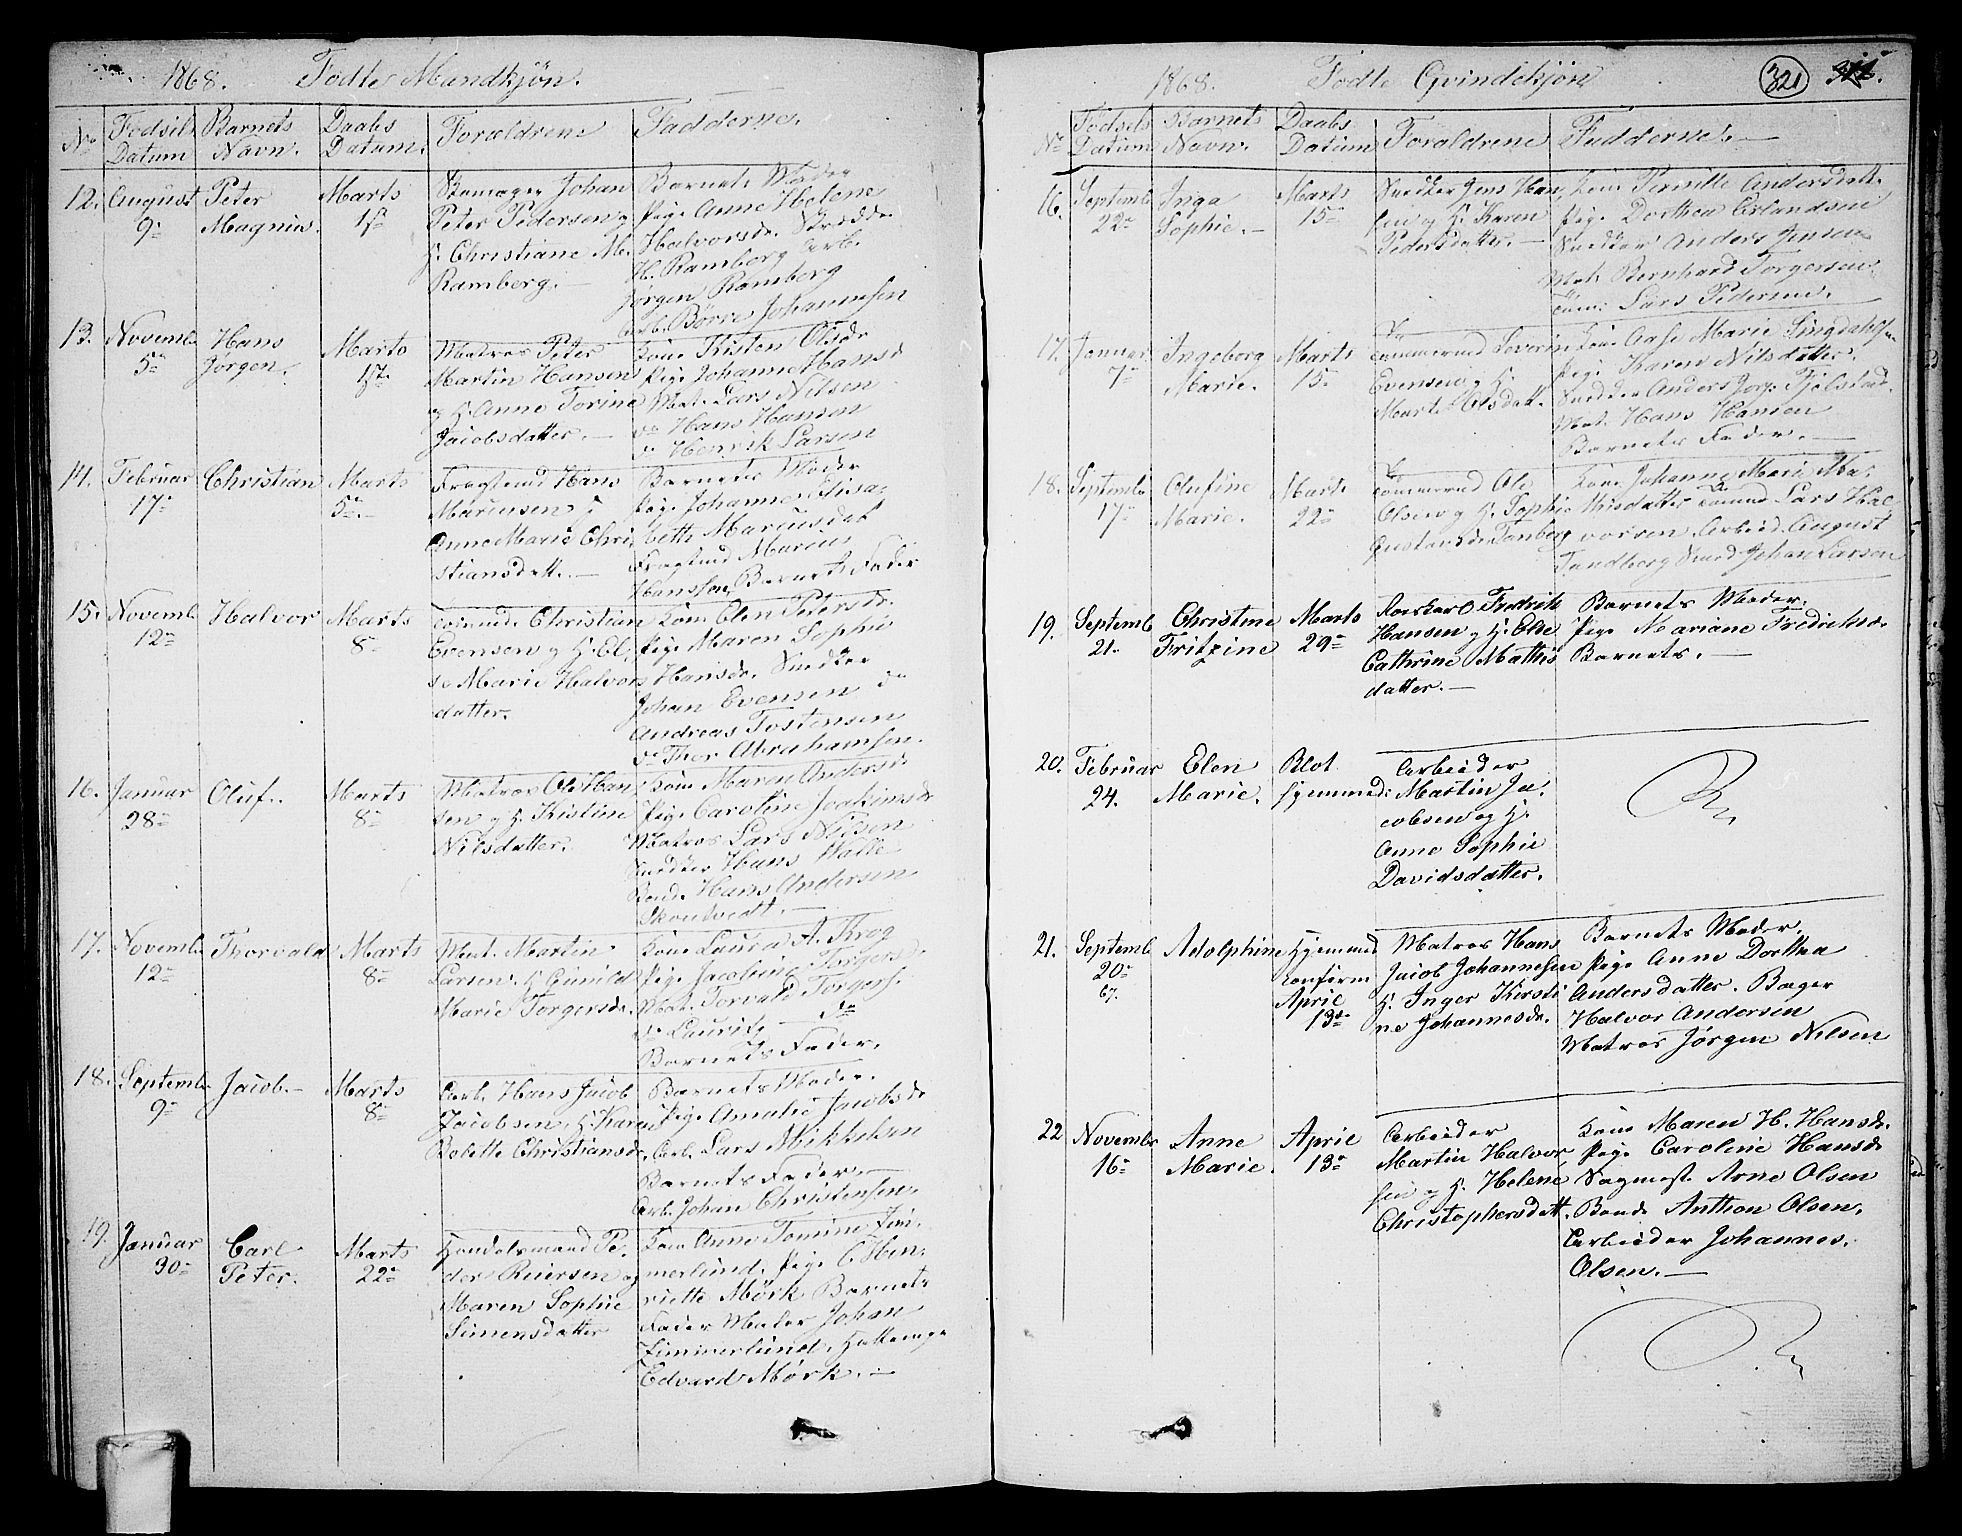 1868. Fodte Mandkjøn.
No Fodsels Datum Barnets Navn. Daabs Datum. Forældrene Fadderne.
12. August 9de Peter Magnus. Marts 1ste
Skomager Johan
Peter Pedersen og
H. Christiane M.
Ramberg. —
Barnets Moder
Pige Anne Helene
Halvorsd. Skrædd.
H. Ramberg Arb.
Jørgen Ramberg
Arb. Børre Johannesen
13. Novemb. 5te Hans Jørgen. Marts
Matros Peter
Martin Hansen
og H. Anne Torine
Jacobsdatter. —
Kone Kisten Olsdr
Pige Johanne Hansd
Mat. Lars Nilsen
do Hans Hansen
do Henrik Larsen
14. Februar 17de Christian Marts 5te —
Fragtmd Hans
Mariusen H
Anne Marie Chri
stiansdatt. —
Barnets Moder
Pige Johanne Elisa-
beth Mariusdat
Fragtmd Marius
Hanssen, Barnets Fader
15. Novemb. 12te Halvor Marts 8de
Christian
Evensen og H. El
se Marie Halvors
datter.
Kone Elen Petersdr.
Pige Maren Sophie
Hansdr. Snedker
Johan Evensen do
Andreas Tostensen
do Thor Abrahamsen.
16. Januar 28de Oluf. Marts 8de
Matros Ole Han
sen og H. Kistine
Nilsdatter.
Kone Maren Andersd.
Pige Caroline Joakimsdr
Matros Lars Nilsen
Snedker Hans Walle
Bonde Hans Andersen
Skoutvedt. —
17. Novemb. 12te Thorvald Marts 8de
Mat. Martin
Larsen, H Gunild
Marie Torgersdr.
Kone Laura A. Krog
Pige Jacobine Torgersd.
Mat. Torvald Torgers.
do Lauritz — do
Barnets Fader.
18. Septemb. 9de Jacob. — Marts 8de
Arb. Hans Jacob
Jacobsen, H. Karen
Bolette Christiansdr.
Barnets Moder.
Pige Amalie Jacobsdr
Arb. Lars Mikkelsen
Barnets Fader. —
Arb. Johan Christensen.
19. Januar 30te Carl Peter. Marts 22de
Handelsmand Pe-
der Reiersen og
Maren Sophie
Simensdatter
Kone Anne Tomine Zim-
merlund. Pige C. Hen-
riette Mörk Barnets
Fader Maler Johan
Zimmerlund, Hattemager
Edvard Mörk. —
1868. Fodte Qvindekjøn 321
No Fødsels Datum Barnets Navn. Daabs Datum Foraldrene Fadderne. —
16. Septemb 22de Inga Sophie. — Marts 15de
Snedker Jens Han
sen og H. Karen
Pedersdatter. —
Kone Pernille Andersdatt.
Pige Dorthea Erlandsen
Snedker Anders Jensen
Mat. Bernhard Torgersen
Lars Pedersen.
17. Januar 7de Ingeborg Marie. Marts 15de
Tømmermd Severin
Evensen og H.
Marte Olsdatt.
Kone Aase Marie
Pige Karen Nilsdatter.
Snedker Anders Jørg. Fjelstad
Mat. Hans Hansen
Barnets Fader. —
18. Septemb 17de Olufine Marie. Marts 22de
Tømmermd Ole
Olsen og H. Sophie
Gustavsdr. Tanberg
Kone Johanne Marie Ma-
thisdatter Tømmd Lars Hal-
vorsen. Arbeid. August
Tandberg Smed Johan Larsen
19. Septemb 21. Christine Fritzine Marts 29de
Fredrik
Hansen og H. Else
Cathrine Mathis
datter. —
Barnets Moder.
Pige Mariane Fredriksd.
Barnets. —
20. Februar 24. Elen Marie. Blot hjemmed.
Arbeider
Martin Ja-
cobsen og H.
Anne Sophie
Davidsdatter.
21. Septemb 20de 67. Adolphine Hjemmed confirm April 13de
Matros Hans
Jacob Johannesen
H. Inger Kirsti
ne Johannesdr.
Barnets Moder.
Pige Anne Dorthea
Andersdatter. Bager
Halvor Andersen
Matros Jørgen Nilsen
22 Novembr 16de Anne Marie. April 13de
Arbeider
Martin Halvor
sen og H. Helene
Christophersdatt.
Kone Maren H. Hansdr.
Pige Caroline Hansdr
Sagmest. Arne Olsen
Bonde Anthon Olsen.
Arbeider Johannes
Olsen. —